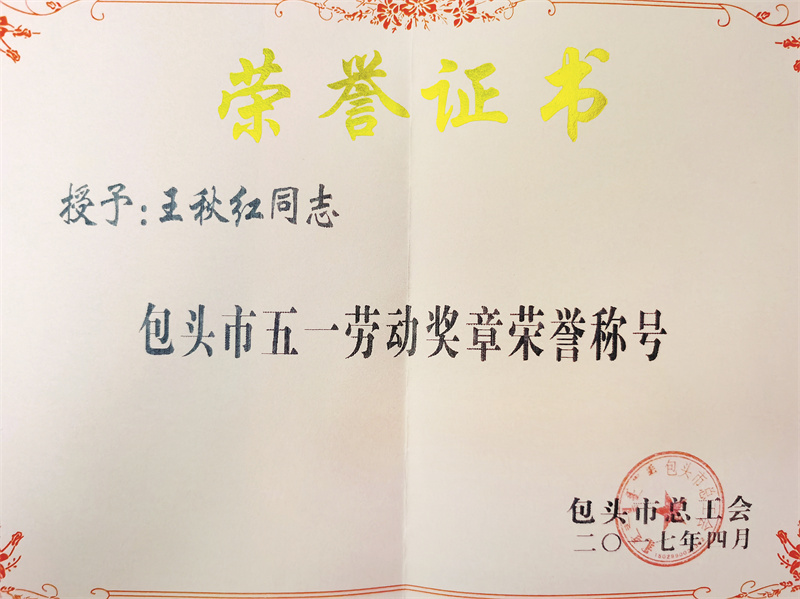 荣誉证书
授予：王秋红同志
包头市五一劳动奖章荣誉称号
包头市总工会
二〇一七年四月
包头市总工会